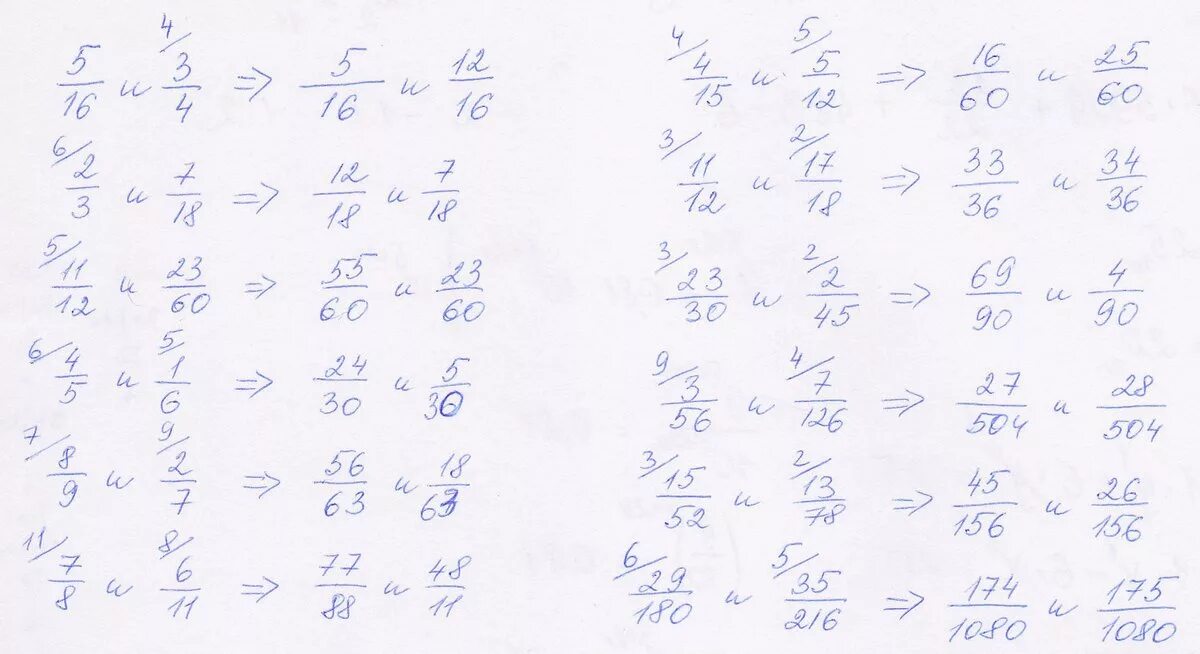 5/16 и 4/ 3/4 => 5/16 и 12/16
6/ 2/3 и 7/18 => 12/18 и 7/18
5/ 11/12 и 23/60 => 55/60 и 23/60
6/ 4/5 и 5/ 1/6 => 24/30 и 5/30
7/ 8/9 и 9/ 2/7 => 56/63 и 18/63
11/ 7/8 и 8/ 6/11 => 77/88 и 48/11
4/ 4/15 и 5/ 5/12 => 16/60 и 25/60
3/ 11/12 и 2/ 17/18 => 33/36 и 34/36
3/ 23/30 и 2/ 2/45 => 69/90 и 4/90
9/ 3/56 и 4/ 7/126 => 27/504 и 28/504
3/ 15/52 и 2/ 13/78 => 45/156 и 26/156
6/ 29/180 и 5/ 35/216 => 174/1080 и 175/1080